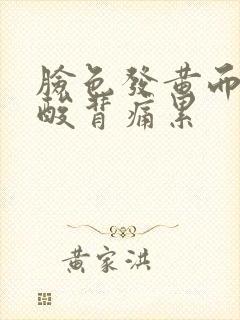 臉色發黃而
酸背痛累
黃家洪